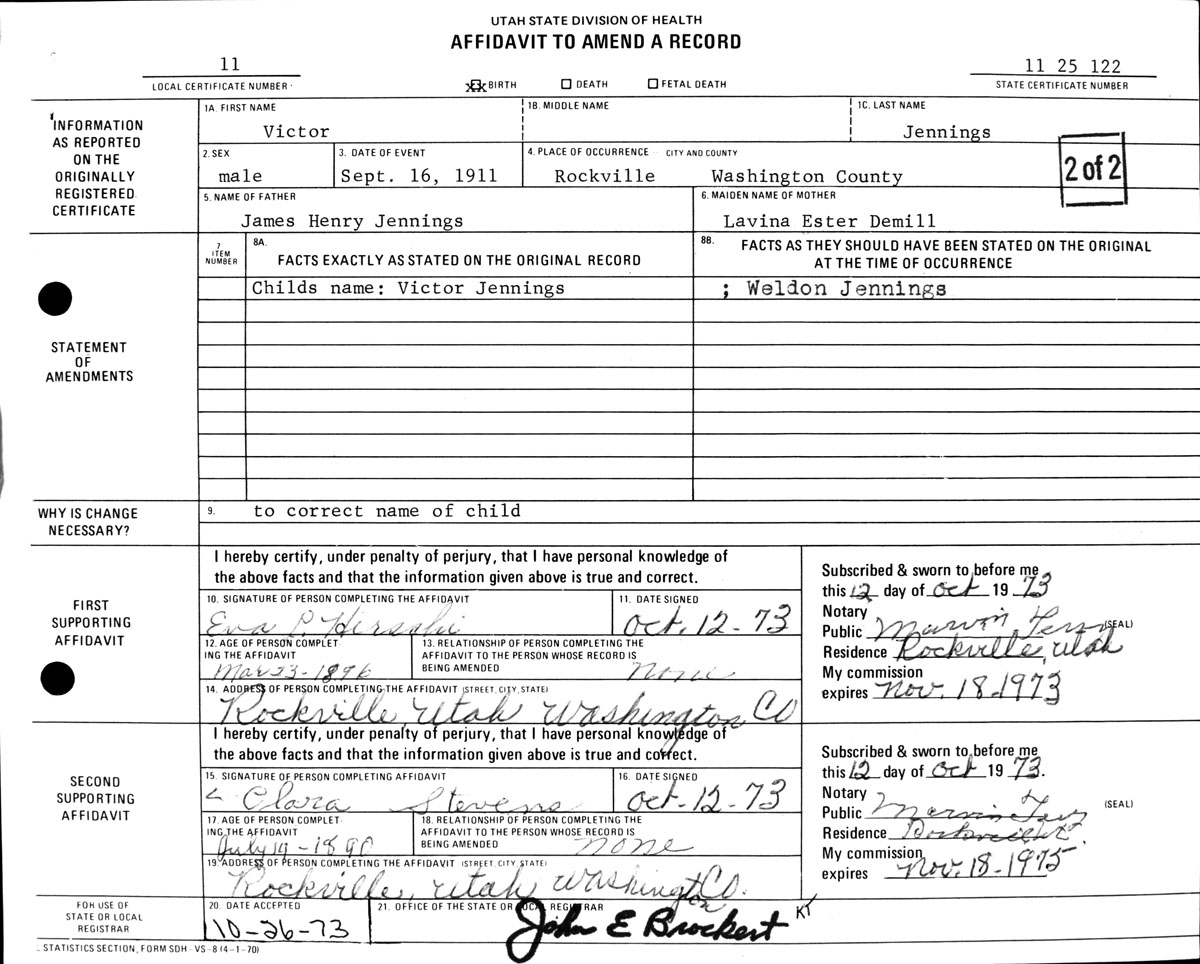 UTAH STATE DIVISION OF HEALTH
AFFIDAVIT TO AMEND A RECORD
11
LOCAL CERTIFICATE NUMBER
xx BIRTH ☐ DEATH ☐ FETAL DEATH
11 25 122
STATE CERTIFICATE NUMBER
INFORMATION
AS REPORTED
ON THE
ORIGINALLY
REGISTERED
CERTIFICATE
1A. FIRST NAME 1B. MIDDLE NAME 1C. LAST NAME
Victor Jennings
2. SEX 3. DATE OF EVENT 4. PLACE OF OCCURRENCE CITY AND COUNTY
male Sept. 16, 1911 Rockville Washington County
2 of 2
5. NAME OF FATHER 6. MAIDEN NAME OF MOTHER
James Henry Jennings Lavina Ester Demill
STATEMENT
OF
AMENDMENTS
7
ITEM
NUMBER
8A.
FACTS EXACTLY AS STATED ON THE ORIGINAL RECORD
8B. FACTS AS THEY SHOULD HAVE BEEN STATED ON THE ORIGINAL
AT THE TIME OF OCCURRENCE
Childs name: Victor Jennings ; Weldon Jennings
WHY IS CHANGE
NECESSARY?
9. to correct name of child
FIRST
SUPPORTING
AFFIDAVIT
I hereby certify, under penalty of perjury, that I have personal knowledge of
the above facts and that the information given above is true and correct.
10. SIGNATURE OF PERSON COMPLETING THE AFFIDAVIT 11. DATE SIGNED
Eva P. Hirschi Oct. 12-73
12. AGE OF PERSON COMPLETING THE AFFIDAVIT
Mar 23-1896
13. RELATIONSHIP OF PERSON COMPLETING THE
AFFIDAVIT TO THE PERSON WHOSE RECORD IS
BEING AMENDED None
14. ADDRESS OF PERSON COMPLETING THE AFFIDAVIT (STREET, CITY, STATE)
Rockville, Utah Washington Co
Subscribed & sworn to before me
this 12 day of Oct 19 73
Notary
Public Marvin (SEAL)
Residence Rockville, Utah
My commission
expires Nov. 18-1973
SECOND
SUPPORTING
AFFIDAVIT
I hereby certify, under penalty of perjury, that I have personal knowledge of
the above facts and that the information given above is true and correct.
15. SIGNATURE OF PERSON COMPLETING AFFIDAVIT 16. DATE SIGNED
Clara Stevens Oct-12-73
17. AGE OF PERSON COMPLETING THE AFFIDAVIT
July 19-1890
18. RELATIONSHIP OF PERSON COMPLETING THE
AFFIDAVIT TO THE PERSON WHOSE RECORD IS
BEING AMENDED none
19. ADDRESS OF PERSON COMPLETING THE AFFIDAVIT (STREET, CITY, STATE)
Rockville, Utah Washington Co.
Subscribed & sworn to before me
this 12 day of Oct 19 73.
Notary
Public Marvin (SEAL)
Residence
My commission
expires Nov. 18-1975
FOR USE OF
STATE OR LOCAL
REGISTRAR
20. DATE ACCEPTED 21. OFFICE OF THE STATE OR LOCAL REGISTRAR
10-26-73 John E Brockert KT
STATISTICS SECTION, FORM SDH-VS-8 (4-1-70)